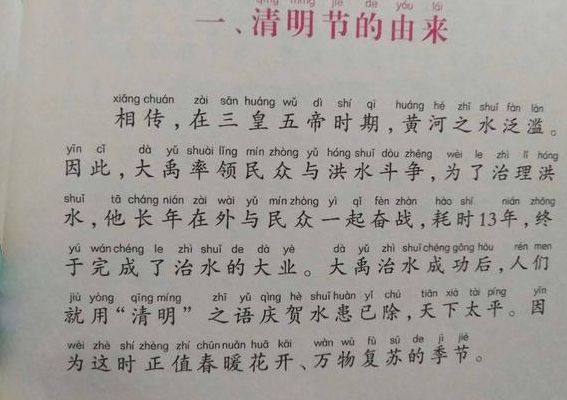 qīng míng jié de yóu lái
一、清明节的由来
xiāng chuán zài sān huáng wǔ dì shí qī huáng hé zhī shuǐ fàn làn
相传，在三皇五帝时期，黄河之水泛滥。
yīn cǐ dà yǔ shuài lǐng mín zhòng yǔ hóng shuǐ dòu zhēng wèi le zhì lǐ hóng
因此，大禹率领民众与洪水斗争，为了治理洪
shuǐ tā cháng nián zài wài yǔ mín zhòng yì qǐ fèn zhàn hào shí nián zhōng
水，他长年在外与民众一起奋战，耗时13年，终
yú wán chéng le zhì shuǐ de dà yè dà yǔ zhì shuǐ chéng gōng hòu rén men
于完成了治水的大业。大禹治水成功后，人们
jiù yòng qīng míng zhī yǔ qìng hè shuǐ huàn yǐ chú tiān xià tài píng yīn
就用“清明”之语庆贺水患已除，天下太平。因
wèi zhè shí zhèng zhí chūn nuǎn huā kāi wàn wù fù sū de jì jié
为这时正值春暖花开、万物复苏的季节。